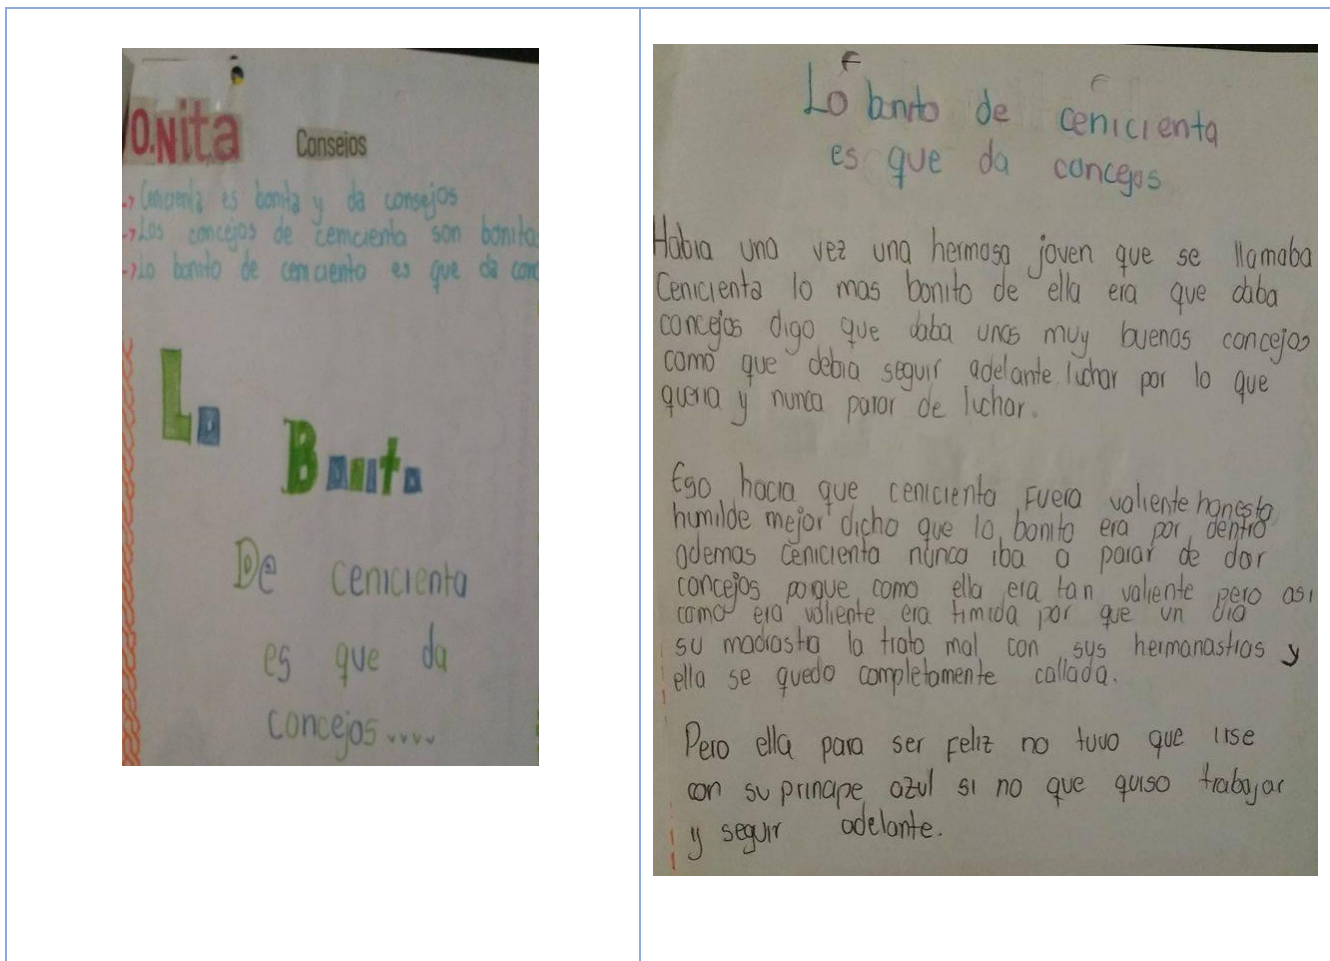 onita Consejos
-> Cenicienta es bonita y da consejos
-> Los concejos de cenicienta son bonita
-> Lo bonito de cenicienta es que da con
Lo
Bonito
De cenicienta
es que da
concejos....
Lo bonito de cenicienta
es que da concejos
Habia una vez una hermosa joven que se llamaba
Cenicienta lo mas bonito de ella era que daba
concejos digo que daba unos muy buenos concejos
como que debia seguir adelante, luchar por lo que
queria y nunca parar de luchar.
Eso hacia que cenicienta Fuera valiente honesta
humilde mejor dicho que lo bonito era por dentro
ademas cenicienta nunca iba a parar de dar
concejos porque como ella era tan valiente pero asi
como era valiente era timida por que un dia
su madrastra la trato mal con sus hermanastras y
ella se quedo completamente callada.
Pero ella para ser Feliz no tuvo que irse
con su principe azul si no que quiso trabajar
y seguir adelante.